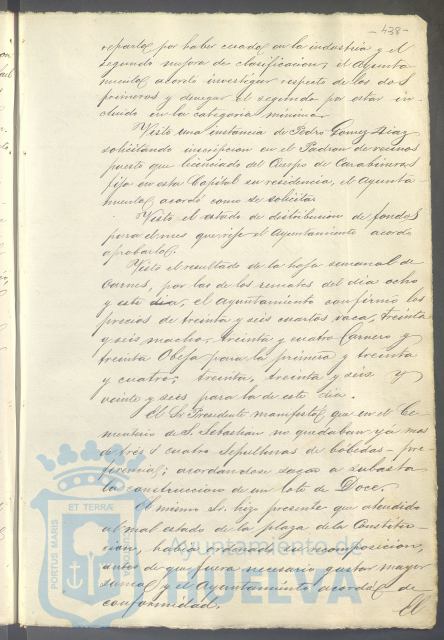 - 438 -
reparto por haber cesado en la industria y el
segundo mejora de clasificacion, el Ayunta-
miento acordó investigar respecto de los dos
primeros y denegar el segundo por estar in-
cluido en la categoría mínima.
Visto una instancia de Pedro Gomez Diaz
solicitando inscripcion en el Padron de vecinos
puesto que licenciado del Cuerpo de Carabineros
fija en esta Capital su residencia, el Ayunta-
miento acordó como se solicita.
Visto el estado de distribucion de fondos
para el mes que rije el Ayuntamiento acordó
aprobarlo.
Visto el resultado de la hoja semanal de
carnes, por las de los remates del dia ocho
y este dia, el Ayuntamiento confirmó los
precios de treinta y seis cuartos vaca, treinta
y seis macho, treinta y cuatro Carnero y
treinta Obeja para la primera y treinta
y cuatro, treinta, treinta y seis y
veinte y seis para la de este dia.
El Sr. Presidente manifestó que en el Ce-
menterio de S. Sebastian no quedaban yá mas
de tres ó cuatro sepulturas de bóbedas pre-
ferencia; acordandose sacar a subasta
la construccion de un lote de Doce.
El mismo Sr. hizo presente que atendido
al mal estado de la plaza de la Constitu-
cion, habia ordenado su recomposicion,
antes de que fuera necesario gastar mayor
suma y el Ayuntamiento acordó de
conformidad.
El
PORTUS MARIS
ET TERRAE
Ayuntamiento de
HUELVA